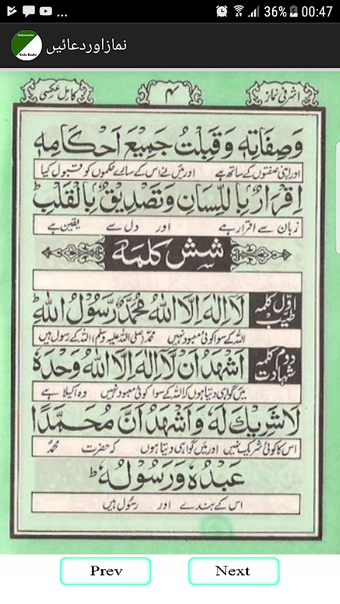 36% 00:47
نماز اور دعائیں
کامل عکسی
۴
اشرفی نماز
وَصِفَاتِهٖ وَقَبِلْتُ جَمِيْعَ اَحْكَامِهٖ
اور اپنی صفتوں کے ساتھ ہے اور میں نے اس کے سارے حکموں کو قبول کیا
اِقْرَارٌ بِاللِّسَانِ وَتَصْدِيْقٌ بِالْقَلْبِ ط
زبان سے اقرار ہے اور دل سے یقین ہے
شش کلمہ
اوّل کلمہ طیب
لَا اِلٰهَ اِلَّا اللهُ مُحَمَّدٌ رَّسُوْلُ اللهِ ط
اللہ کے سوا کوئی معبود نہیں محمد (صلی اللہ علیہ وسلم) اللہ کے رسول ہیں
دوم کلمہ شہادت
اَشْهَدُ اَنْ لَّا اِلٰهَ اِلَّا اللهُ وَحْدَهٗ
میں گواہی دیتا ہوں کہ اللہ کے سوا کوئی معبود نہیں وہ اکیلا ہے
لَا شَرِيْكَ لَهٗ وَاَشْهَدُ اَنَّ مُحَمَّدًا
اس کا کوئی شریک نہیں اور میں گواہی دیتا ہوں کہ حضرت محمدؐ
عَبْدُهٗ وَرَسُوْلُهٗ ط
اس کے بندے اور رسول ہیں
Prev Next